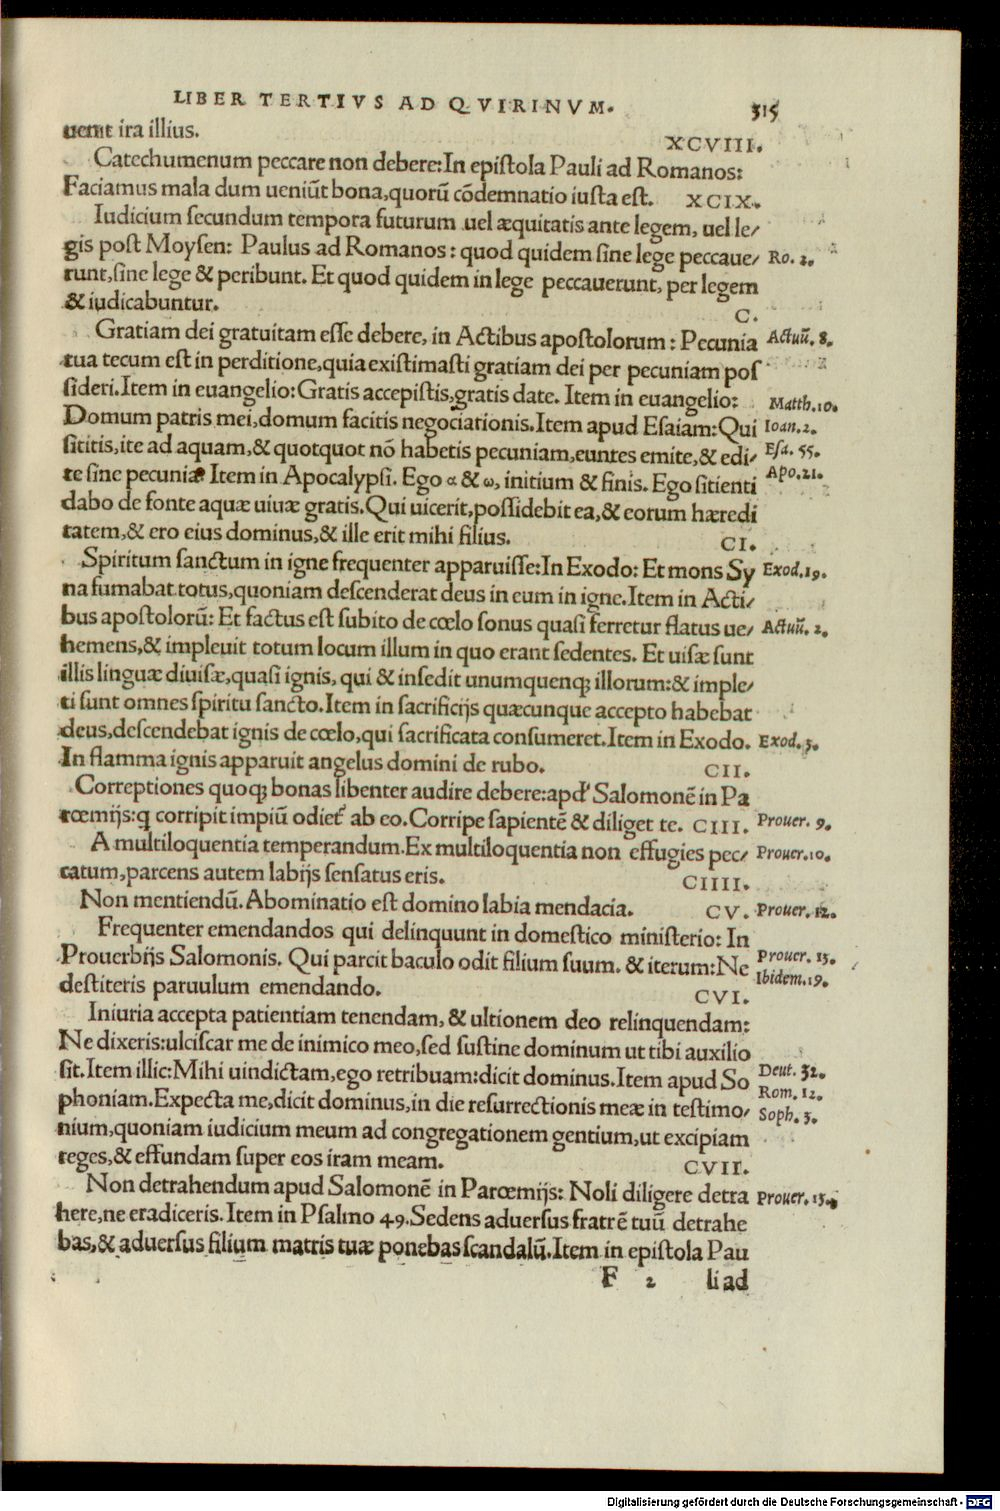 LIBER TERTIVS AD QVIRINVM. 315
uenit ira illius. XCVIII.
Catechumenum peccare non debere: In epiſtola Pauli ad Romanos:
Faciamus mala dum ueniūt bona, quorū cōdemnatio iuſta eſt. XCIX.
Iudicium ſecundum tempora futurum uel æquitatis ante legem, uel le/
gis poſt Moyſen: Paulus ad Romanos: quod quidem ſine lege peccaue/ Ro. 2.
runt, ſine lege & peribunt. Et quod quidem in lege peccauerunt, per legem
& iudicabuntur. C.
Gratiam dei gratuitam eſſe debere, in Actibus apoſtolorum: Pecunia Actuū. 8.
tua tecum eſt in perditione, quia exiſtimaſti gratiam dei per pecuniam poſ
ſideri. Item in euangelio: Gratis accepiſtis, gratis date. Item in euangelio: Matth. 10.
Domum patris mei, domum facitis negociationis. Item apud Eſaiam: Qui Ioan. 2.
ſititis, ite ad aquam, & quotquot nō habetis pecuniam, euntes emite, & edi/ Eſa. 55.
te ſine pecunia. Item in Apocalypſi. Ego α & ω, initium & finis. Ego ſitienti Apo. 21.
dabo de fonte aquæ uiuæ gratis. Qui uicerit, poſſidebit ea, & eorum hæredi
tatem, & ero eius dominus, & ille erit mihi filius. CI.
Spiritum ſanctum in igne frequenter apparuiſſe: In Exodo: Et mons Sy Exod. 19.
na fumabat totus, quoniam deſcenderat deus in eum in igne. Item in Acti/
bus apoſtolorū: Et factus eſt ſubito de cœlo ſonus quaſi ferretur flatus ue/ Actuū. 2.
hemens, & impleuit totum locum illum in quo erant ſedentes. Et uiſæ ſunt
illis linguæ diuiſæ, quaſi ignis, qui & inſedit unumquenq; illorum: & imple/
ti ſunt omnes ſpiritu ſancto. Item in ſacrificijs quæcunque accepto habebat
deus, deſcendebat ignis de cœlo, qui ſacrificata conſumeret. Item in Exodo. Exod. 3.
In flamma ignis apparuit angelus domini de rubo. CII.
Correptiones quoq; bonas libenter audire debere: apd' Salomonē in Pa
rœmijs: q corripit impiū odiet' ab eo. Corripe ſapientē & diliget te. CIII. Prouer. 9.
A multiloquentia temperandum. Ex multiloquentia non effugies pec/ Prouer. 10.
catum, parcens autem labijs ſenſatus eris. CIIII.
Non mentiendū. Abominatio eſt domino labia mendacia. CV. Prouer. 12.
Frequenter emendandos qui delinquunt in domeſtico miniſterio: In
Prouerbijs Salomonis. Qui parcit baculo odit filium ſuum. & iterum: Ne Prouer. 13.
deſtiteris paruulum emendando. CVI. Ibidem. 19.
Iniuria accepta patientiam tenendam, & ultionem deo relinquendam:
Ne dixeris: ulciſcar me de inimico meo, ſed ſuſtine dominum ut tibi auxilio
ſit. Item illic: Mihi uindictam, ego retribuam: dicit dominus. Item apud So Deut. 32. Rom. 12.
phoniam. Expecta me, dicit dominus, in die reſurrectionis meæ in teſtimo/ Soph. 3.
nium, quoniam iudicium meum ad congregationem gentium, ut excipiam
reges, & effundam ſuper eos iram meam. CVII.
Non detrahendum apud Salomonē in Parœmijs: Noli diligere detra Prouer. 15.
here, ne eradiceris. Item in Pſalmo 49. Sedens aduerſus fratrē tuū detrahe
bas, & aduerſus filium matris tuæ ponebas ſcandalū. Item in epiſtola Pau
F 2 li ad
Digitalisierung gefördert durch die Deutsche Forschungsgemeinschaft - DFG